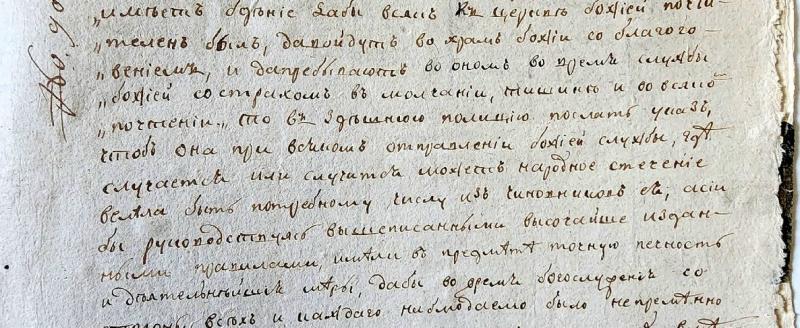 „имѣетъ бдѣніе дабы всякъ къ церквѣ божіей почти-
„теленъ былъ, да пойдутъ во храмъ божіи со благого-
„вѣніемъ, и да пребываютъ во ономъ во время службы
„божіей со страхомъ въ молчаніи, тишинѣ и во всяко
„почтеніи„ то въ здѣшнюю полицію послать указъ,
чтобъ она при всякомъ отправленіи божіей службы, гдѣ
случается или случится можетъ народное стеченіе
велѣла быть потребному числу изъ чиновниковъ ея, а сіи
бы руководствуясь вышеписанными высочайше издан-
ными правилами, имѣли въ предмѣтѣ точную
и дѣятельнѣйшія мѣры, дабы во время богослуженія со
стороны всѣхъ и каждаго наблюдаемо было непремѣнно